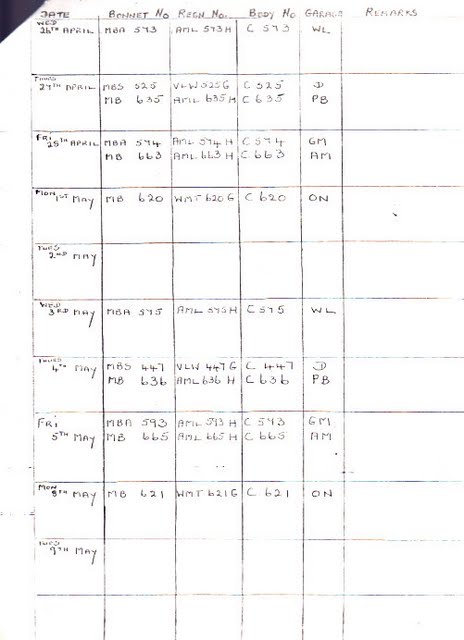 DATE BONNET No REGN No. BODY No GARAGE REMARKS
WED
26TH APRIL MBA 573 AML 573H C 573 WL
THURS
27TH APRIL MBS 525 VLW 525G C 525 D
MB 635 AML 635H C 635 PB
FRI
28TH APRIL MBA 574 AML 574 H C 574 GM
MB 663 AML 663 H C 663 AM
MON
1ST MAY MB 620 WMT 620G C 620 ON
TUES
2ND MAY
WED
3RD MAY MBA 575 AML 575H C 575 WL
THURS
4TH MAY MBS 447 VLW 447G C 447 D
MB 636 AML 636 H C 636 PB
FRI MBA 593 AML 593 H C 593 GM
5TH MAY MB 665 AML 665 H C 665 AM
MON
8TH MAY MB 621 WMT 621G C 621 ON
TUES
9TH MAY